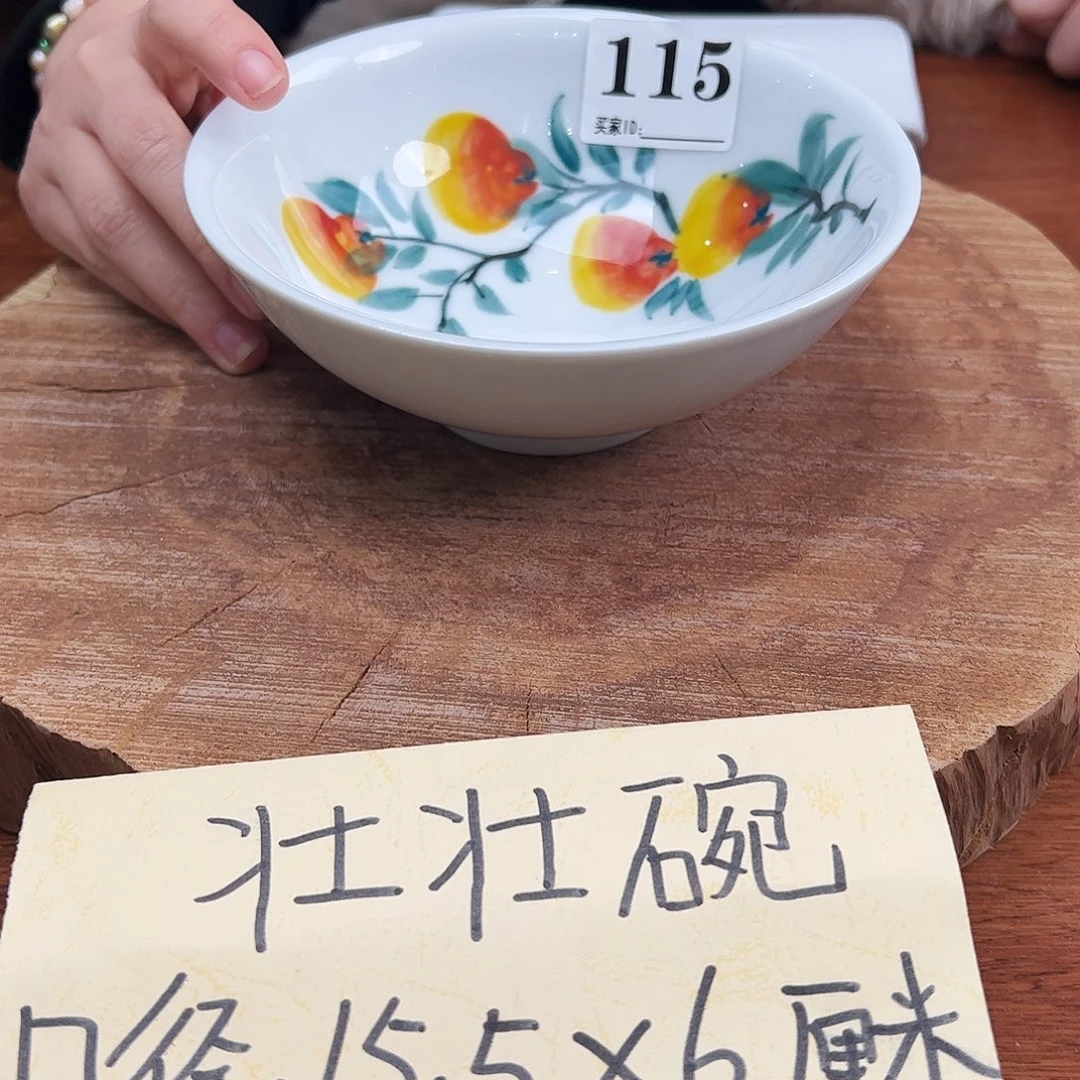 115
买家ID:
壮壮碗
口径15.5×6厘米